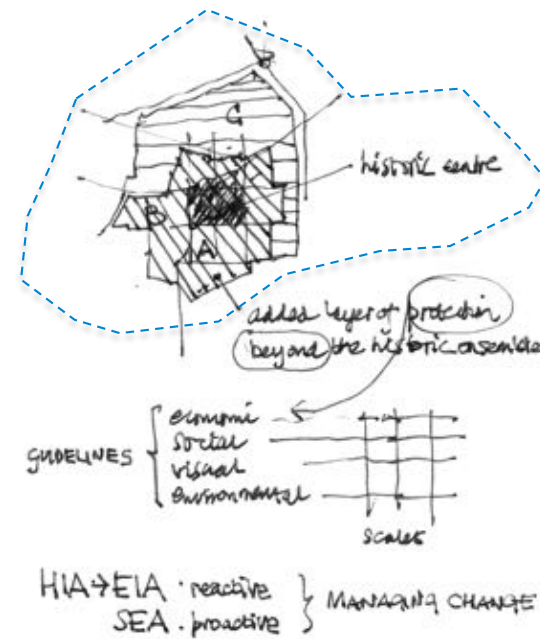 C
historic centre
B
A
added layer of protection
beyond the historic ensemble
economic
social
GUIDELINES
visual
environmental
scales
HIA→EIA · reactive
SEA · proactive
MANAGING CHANGE